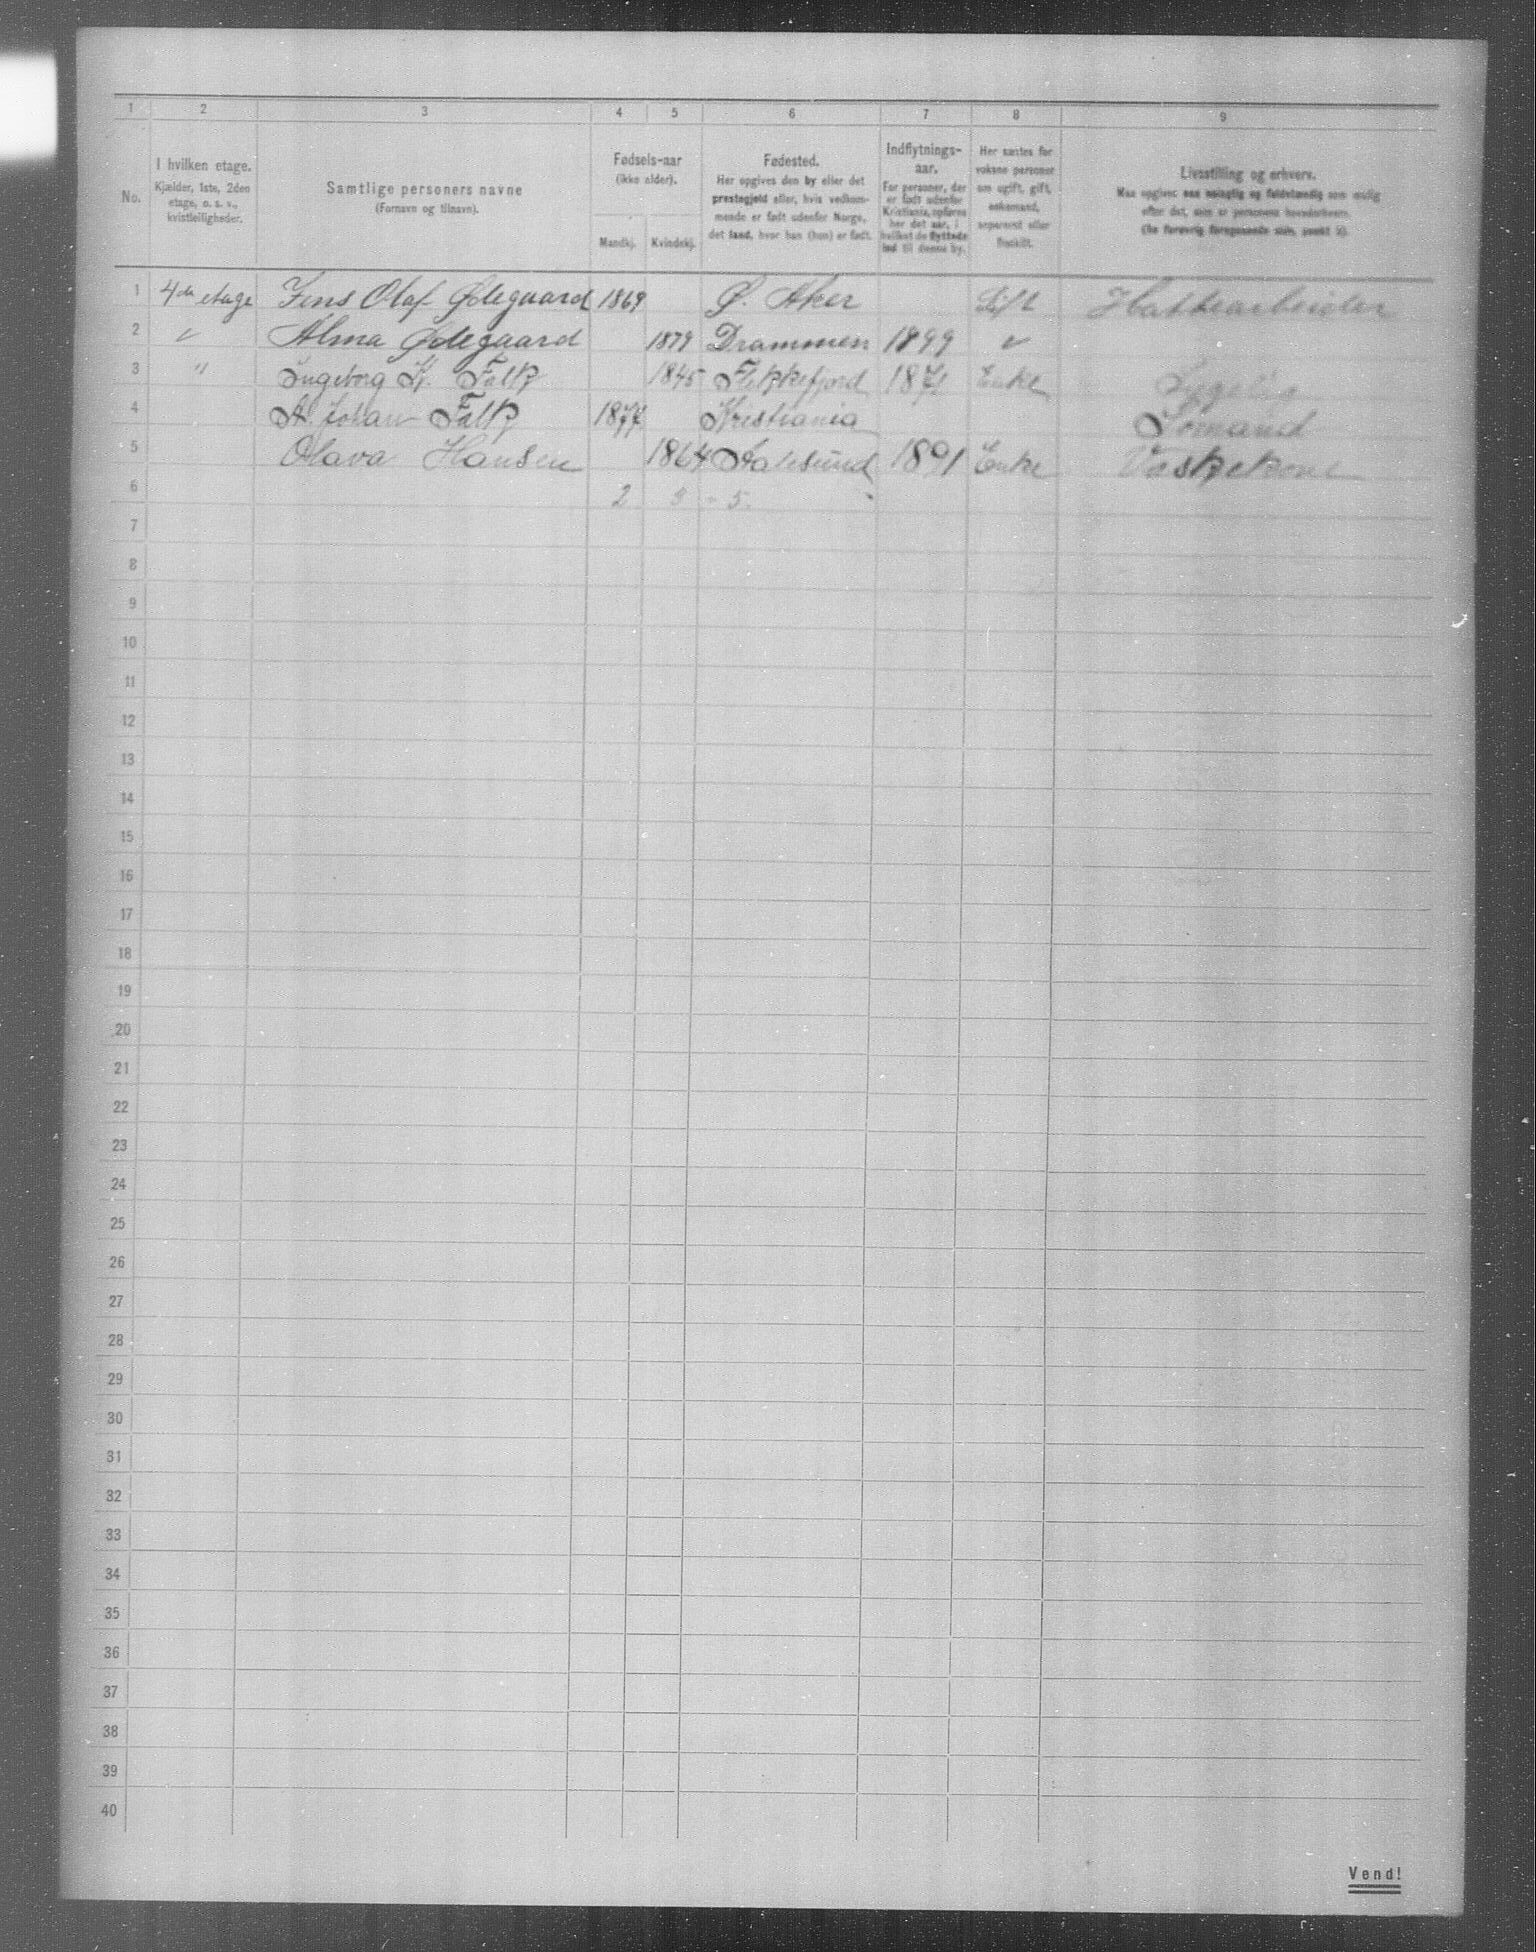 1 2 3 4 5 6 7 8 9
No.
I hvilken etage.
Kjælder, 1ste, 2den
etage, o. s. v.,
kvistleiligheder.
Samtlige personers navne
(Fornavn og tilnavn).
Fødsels-aar
(ikke alder).
Mandkj. Kvindekj.
Fødested.
Her opgives den by eller det
prestegjeld eller, hvis vedkom-
mende er født udenfor Norge,
det land, hvor han (hun) er født.
Indflytnings-
aar.
For personer, der
er født udenfor
Kristiania, opføres
her det aar, i
hvilket de flyttede
ind til denne by.
Her sættes for
voksne personer
om ugift, gift,
enkemand,
separeret eller
fraskilt.
Livsstilling og erhverv.
Maa opgives saa nøiagtig og fuldstændig som mulig
efter det, som er personens hovederhverv.
(Se forøvrig foregaaende side, punkt 5).
1 4de etage Jens Olaf Ødegaard 1869 Ø. Aker Gift Hattearbeider
2 " Alma Ødegaard 1879 Drammen 1899 "
3 " Ingeborg K. Falk 1845 Flekkefjord 1871 Enke Sygelig
4 A. Johan Falk 1877 Kristiania Sømand
5 Olava Hansen 1864 Aalesund 1891 Enke Vaskekone
6 2 3 - 5.
7
8
9
10
11
12
13
14
15
16
17
18
19
20
21
22
23
24
25
26
27
28
29
30
31
32
33
34
35
36
37
38
39
40
Vend!